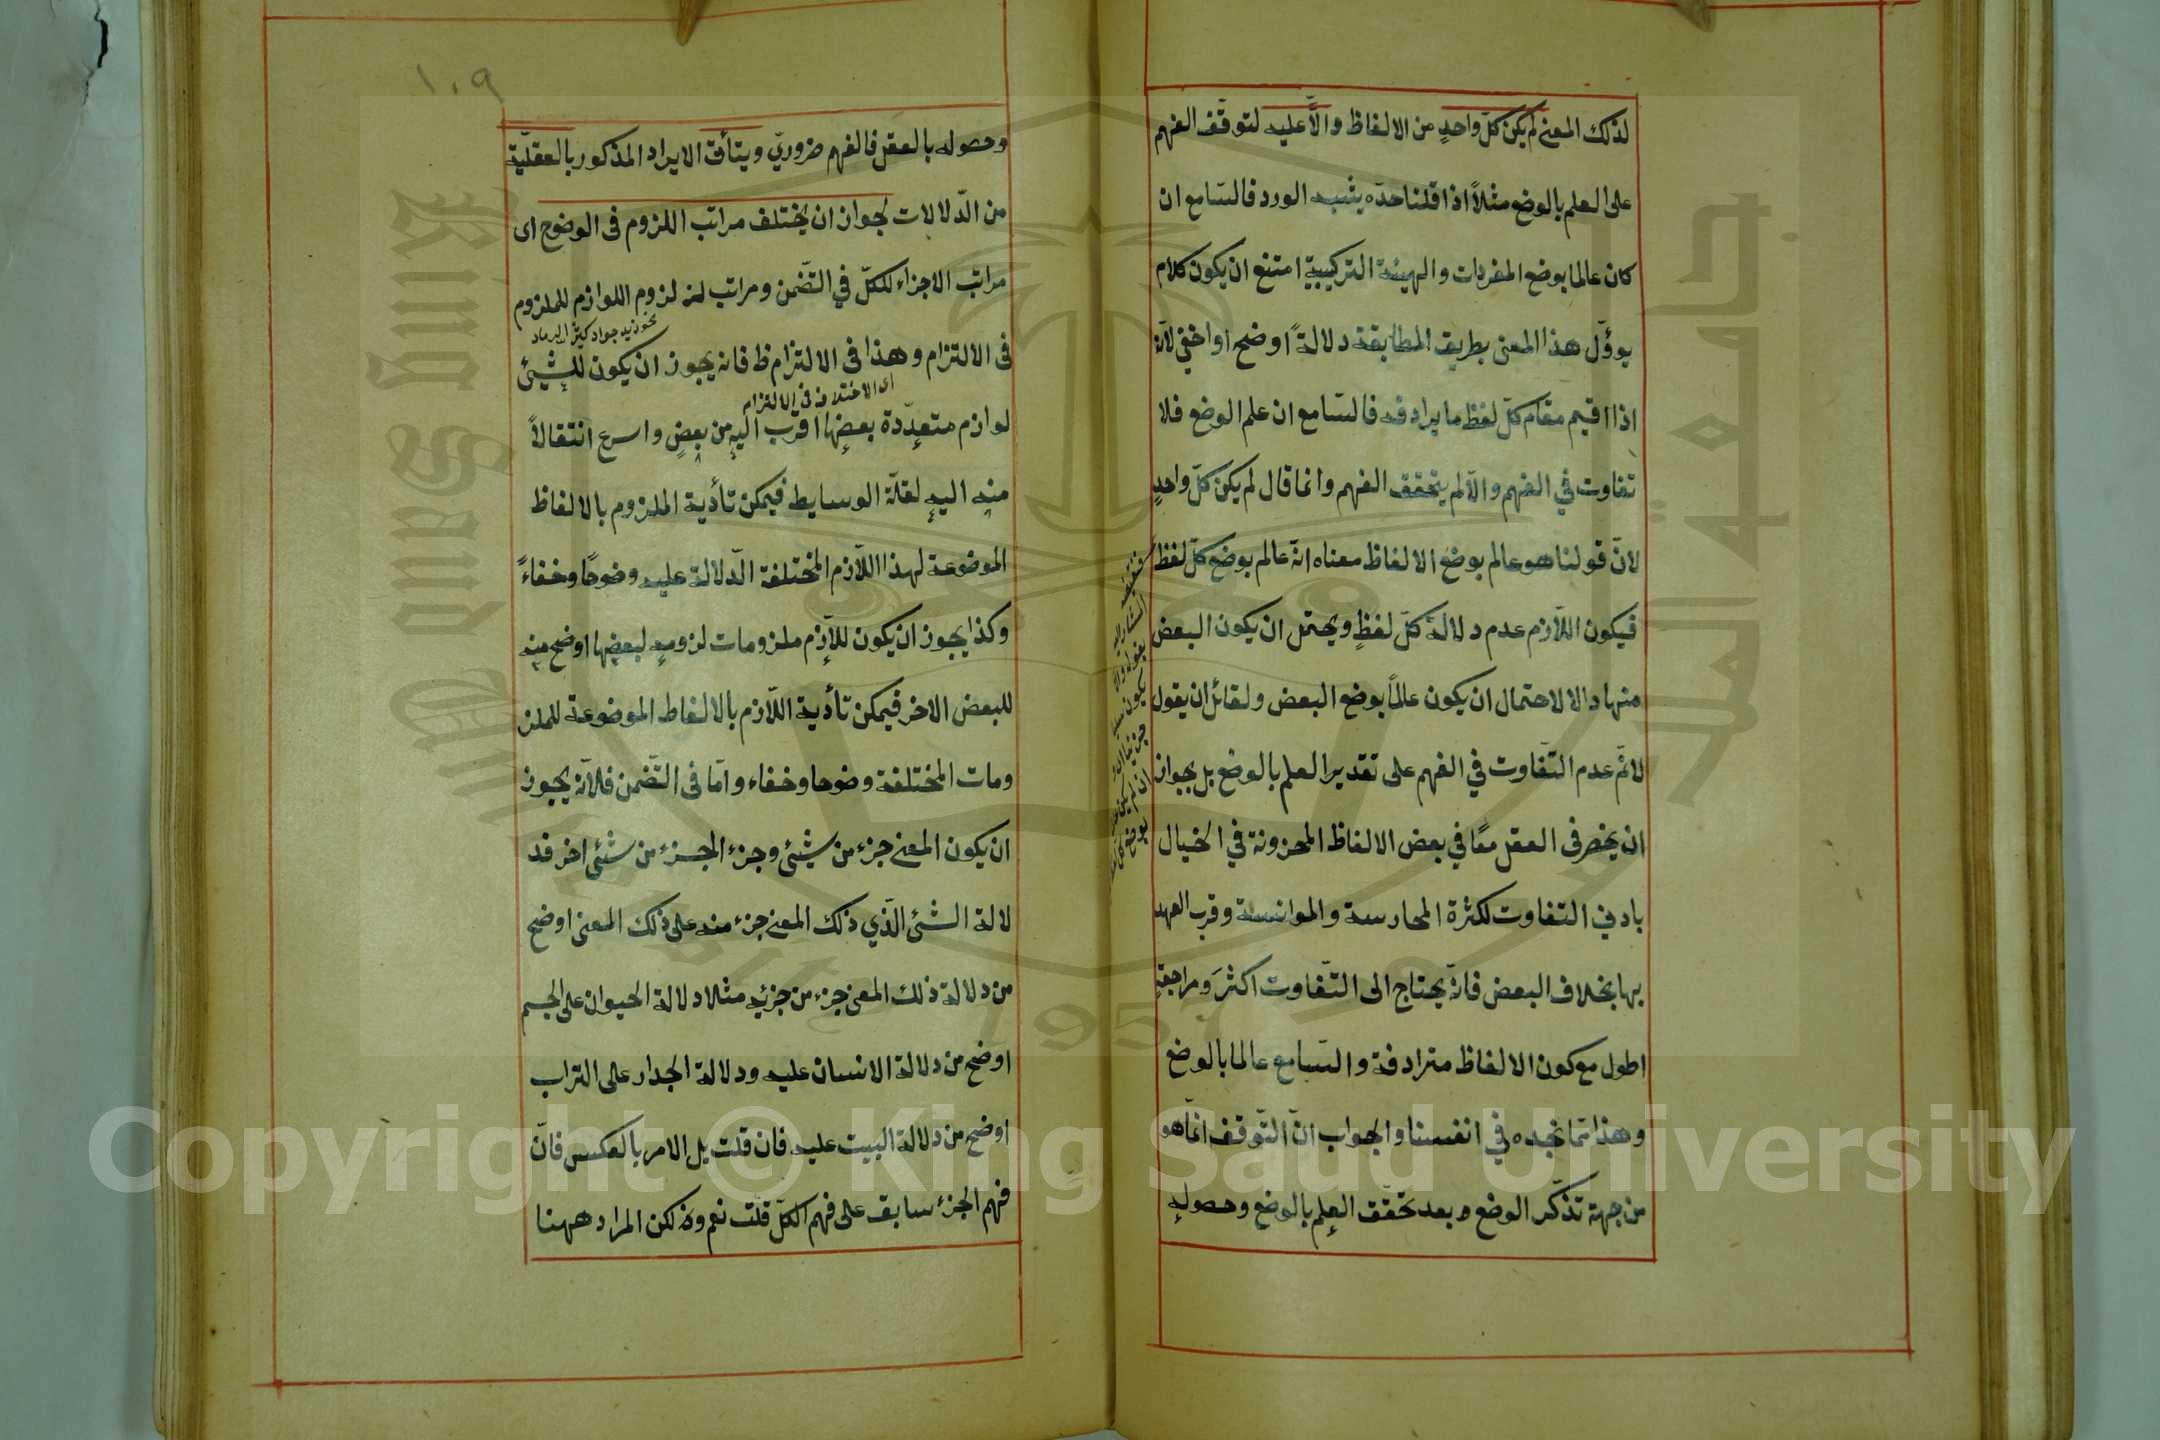 لذلك المعنى لم يكن كلّ واحدٍ من الالفاظ والّا عليه لتوقّف الفهم
على العلم بالوضع مثلاً اذا قلنا خدّه يشبه الورد فالسّامع ان
كان عالما بوضع المفردات والهيئة التركيبية امتنع ان يكون كلام
يوؤّل هذا المعنى بطريق المطابقة دلالةً اوضح او اخفى لانّه
اذا اقيم مقام كلّ لفظ ما يرادفه فالسّامع ان علم الوضع فلا
تفاوت في الفهم والّا لم يتحقق الفهم وانما قال لم يكن كلّ واحدٍ
لانّ قولنا هو عالم بوضع الالفاظ معناه انّه عالم بوضع كلّ لفظ
فيكون اللّازم عدم دلالة كلّ لفظٍ ويحتمل ان يكون البعض
منها دالا لاحتمال ان يكون عالماً بوضع البعض ولقائل ان يقول
لانم عدم التّفاوت في الفهم على تقدير العلم بالوضع بل يجوز
ان يحضر فى العقل معًا في بعض الالفاظ المخزونة في الخيال
بادنى التفاوت لكثرة الممارسة والموانسة وقرب العهد
بها بخلاف البعض فانّه يحتاج الى التّفاوت اكثرَ ومراجعةٍ
اطول مع كون الالفاظ مترادفة والسّامع عالما بالوضع
وهذا ممّا نجده في انفسنا والجواب انّ التّوقف انّما هو
من جهة تذكّر الوضع وبعد تحقّق العلم بالوضع وحصوله
١٠٩
وحصوله بالعقل فالفهم ضروريّ ويتأتى الايراد المذكور بالعقليّة
من الدّلالات لجواز ان يختلف مراتب اللزوم فى الوضوح اى
مراتب الاجزاء للكلّ في التّضمن ومراتب لز لزوم اللوازم للملزوم
نحو زيد جواد كثير الرماد
فى الالتزام وهذا فى الالتزام ظ فانه يجوز ان يكون للشيئ
اى الاختلاف فى الالتزام
لوازم متعدّدة بعضها اقرب اليه من بعضٍ واسرع انتقالاً
منه اليه لقلّة الوسايط فيمكن تأدية الملزوم بالالفاظ
الموضوعة لهذا اللّازم المختلفة الدّلالة عليه وضوحًا وخفاءً
وكذا يجوز ان يكون للّازم ملزومات لزومه لبعضها اوضح منه
للبعض الاخر فيمكن تأدية اللّازم بالالفاظ الموضوعة للملز
ومات المختلفة وضوحا وخفاء وامّا فى التّضمن فلانّه يجوز
ان يكون المعنى جزء من شيئى وجزء الجزء من شئى اخر فد
لالة الشئى الّذي ذلك المعنى جزء منه على ذلك المعنى اوضح
من دلالة ذلك المعنى جزء من جزئه مثلا دلالة الحيوان على الجسم
اوضح من دلالة الانسان عليه ودلالة الجدار على التراب
اوضح من دلالة البيت عليه فان قلت بل الامر بالعكس فانّ
فهم الجزء سابق على فهم الكلّ قلت نعم ولكن المراد ههنا
Copyright © King Saud University
King Saud University
1957